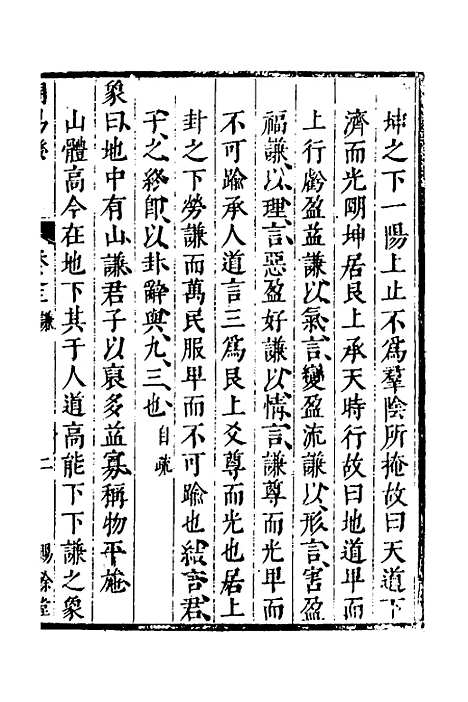 坤之下一陽上止不爲羣陰所掩故曰天道下
濟而光明坤居艮上承天時行故曰地道卑而
上行虧盈益謙以氣言變盈流謙以形言害盈
福謙以理言惡盈好謙以情言謙尊而光卑而
不可踰承人道言三爲艮上爻尊而光也居上
卦之下勞謙而萬民服卑而不可踰也結言君
子之終即以卦辭與九三也自疏
象曰地中有山謙君子以裒多益寡稱物平施
山體高今在地下其于人道高能下下謙之象
周易
卷之三 謙
二
賜餘堂